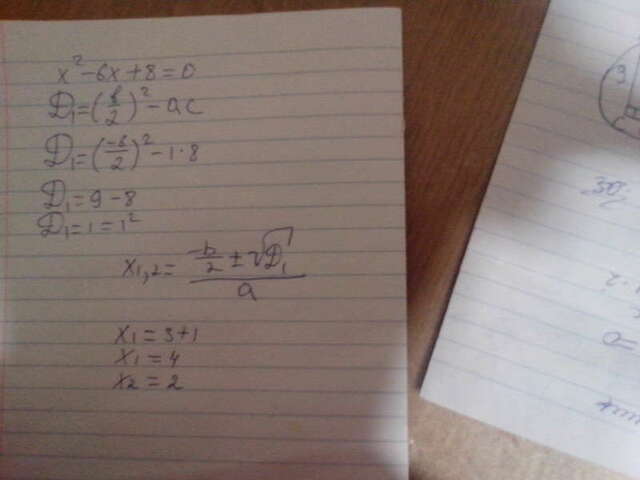 x² - 6x + 8 = 0
D₁ = (b/2)² - ac
D₁ = (-6/2)² - 1·8
D₁ = 9 - 8
D₁ = 1 = 1²
x₁,₂ = (-b/2 ± √D₁)/a
x₁ = 3+1
x₁ = 4
x₂ = 2